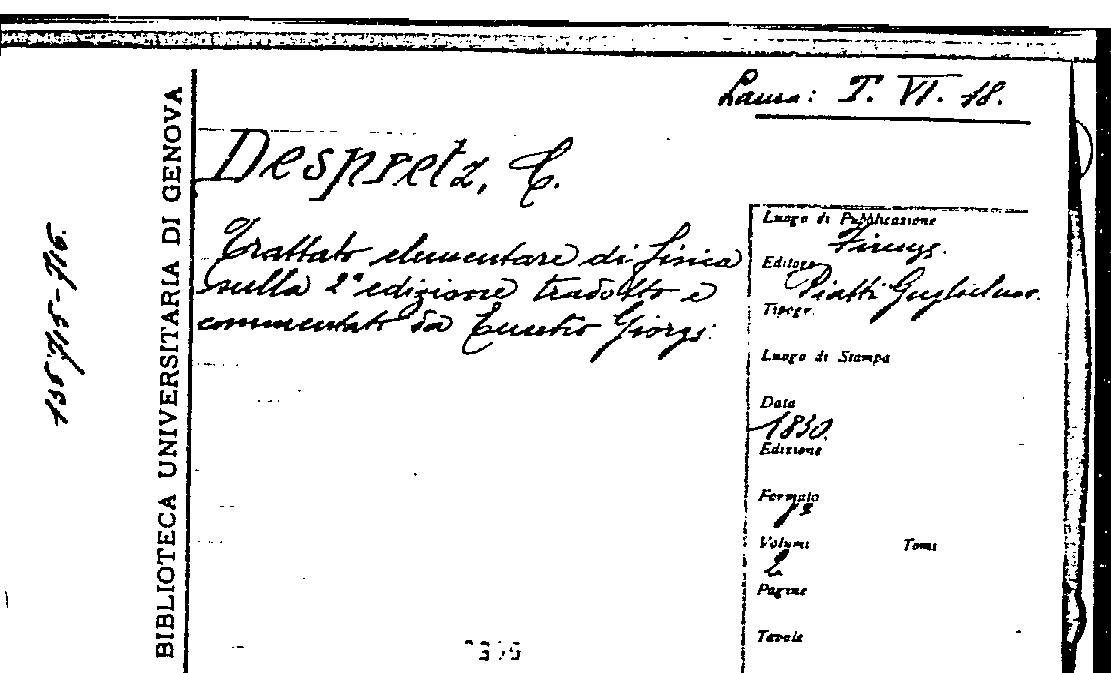 Laura: T. VI. 18.
BIBLIOTECA UNIVERSITARIA DI GENOVA
135715-716.
Despretz, C.
Trattato elementare di fisica
sulla 2ª edizione tradotto e
commentato da Eusebio Giorgi.
Luogo di Pubblicazione
Firenze.
Editore
Piatti Guglielmo.
Tipogr.
Luogo di Stampa
Data
1830.
Edizione
Formato
Volumi Tomi
2
Pagine
Tavole